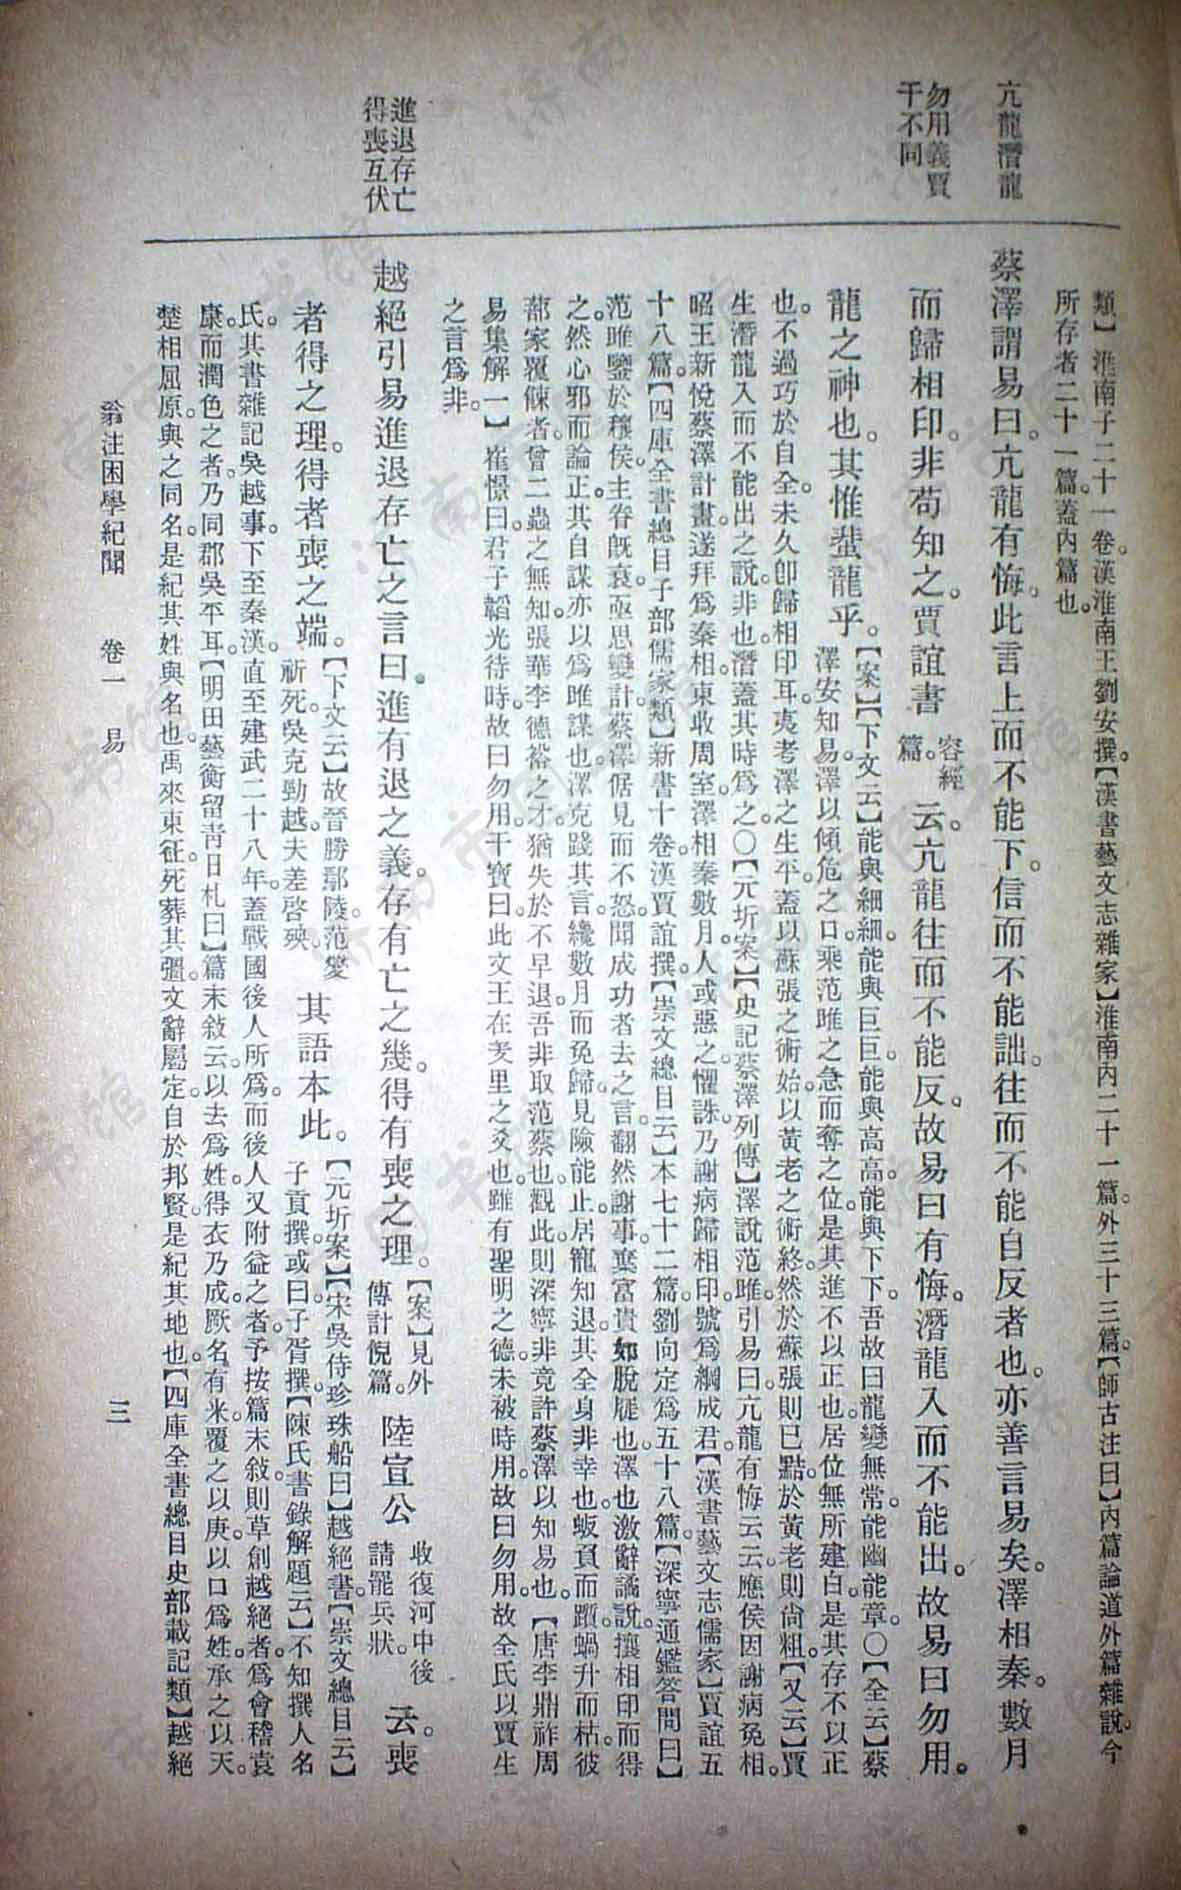 亢龍潛龍
勿用義賈
干不同
進退存亡
得喪互伏
類】淮南子二十一卷。漢淮南王劉安撰。【漢書藝文志雜家】淮南內二十一篇。外三十三篇。【師古注曰】內篇論道。外篇雜說。今
所存者二十一篇。蓋內篇也。
蔡澤謂易曰。亢龍有悔。此言上而不能下。信而不能詘。往而不能自反者也。亦善言易矣。澤相秦數月
而歸相印。非苟知之。賈誼書容經篇。云。亢龍往而不能反。故易曰有悔。潛龍入而不能出。故易曰勿用。
龍之神也。其惟蜚龍乎。【案】【下文云】能與細細。能與巨巨。能與高高。能與下下。吾故曰龍變無常。能幽能章。〇【全云】蔡
澤安知易。澤以傾危之口。乘范雎之急而奪之位。是其進不以正也。居位無所建白。是其存不以正
也。不過巧於自全。未久卽歸相印耳。夷考澤之生平。蓋以蘇張之術始。以黃老之術終。然於蘇張則已黠。於黃老則尙粗。【又云】賈
生潛龍入而不能出之說。非也。潛蓋其時爲之。〇【元圻案】【史記蔡澤列傳】澤說范雎。引易曰。亢龍有悔云云。應侯因謝病免相。
昭王新悅蔡澤計畫。遂拜爲秦相。東收周室。澤相秦數月。人或惡之。懼誅。乃謝病歸相印。號爲綱成君。【漢書藝文志儒家】賈誼五
十八篇。【四庫全書總目子部儒家類】新書十卷。漢賈誼撰。【崇文總目云】本七十二篇。劉向定爲五十八篇。【深寧通鑑答問曰】
范雎鑒於穰侯。主眷旣衰。亟思變計。蔡澤倨見而不怒。聞成功者去之言。翻然謝事。棄富貴如脫屣也。澤也激辭譎說。攘相印而得
之。然心邪而論正。其自謀亦以爲雎謀也。澤克踐其言。纔數月而免歸。見險能止。居寵知退。其全身非幸也。蝂負而躓。蝸升而枯。彼
蔀家覆餗者。曾二蟲之無知。張華李德裕之才。猶失於不早退。吾非取范蔡也。觀此則深寧非竟許蔡澤以知易也。【唐李鼎祚周
易集解一】崔憬曰。君子韜光待時。故曰勿用。干寶曰。此文王在羑里之爻也。雖有聖明之德。未被時用。故曰勿用。故全氏以賈生
之言爲非。
越絕引易進退存亡之言曰。進有退之義。存有亡之幾。得有喪之理。【案】見外傳計倪篇。陸宣公收復河中後請罷兵狀。云。喪
者得之理。得者喪之端。【下文云】故晉勝鄢陵。范燮祈死。吳克勁越。夫差啓殃。其語本此。【元圻案】【宋吳侍珍珠船曰】越絕書。【崇文總目云】
子貢撰。或曰子胥撰。【陳氏書錄解題云】不知撰人名
氏。其書雜記吳越事。下至秦漢。直至建武二十八年。蓋戰國後人所爲。而後人又附益之者。予按篇末敘。則草創越絕者。爲會稽袁
康。而潤色之者。乃同郡吳平耳。【明田藝衡留靑日札曰】篇末敘云。以去爲姓。得衣乃成。厥名有米。覆之以庚。以口爲姓。承之以天。
楚相屈原。與之同名。是紀其姓與名也。禹來東征。死葬其疆。文辭屬定。自於邦賢。是紀其地也。【四庫全書總目史部載記類】越絕
翁注困學紀聞　卷一　易　三